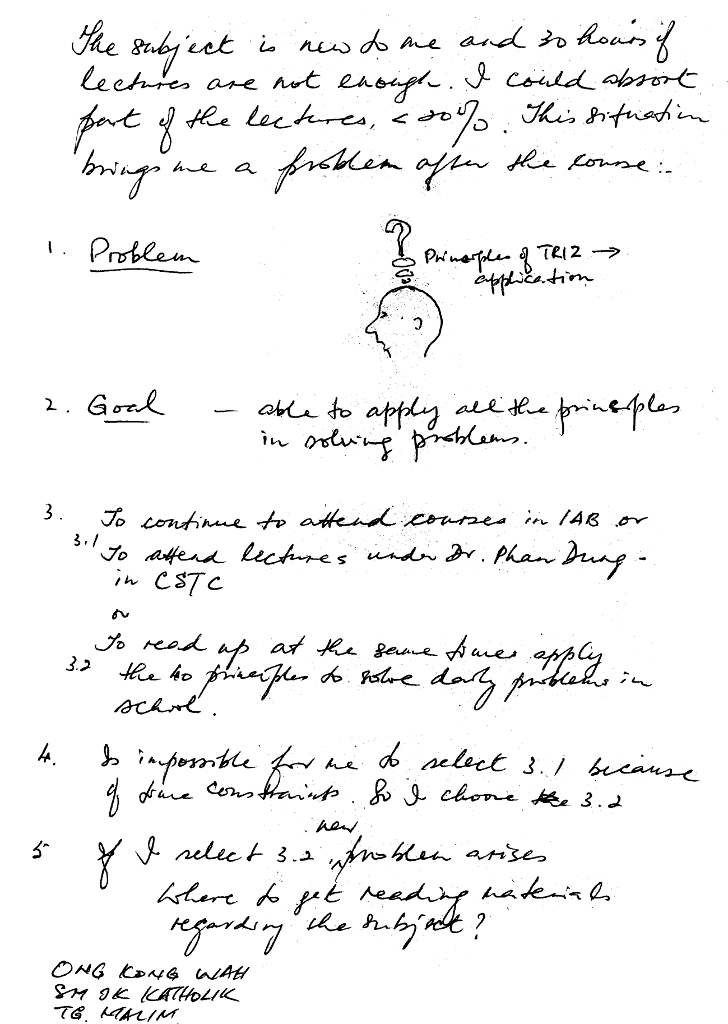 The subject is new to me and 30 hours of
lectures are not enough. I could absort
part of the lectures, < 20%. This situation
brings me a problem after the course:-
1. Problem
?
Principles of TRIZ →
application
2. Goal – able to apply all the principles
in solving problems.
3. To continue to attend courses in IAB or
3.1 To attend lectures under Dr. Phan Dung -
in CSTC
or
To read up at the same times apply
3.2 the 40 principles to solve daily problems in
school.
4. Is impossible for me to select 3.1 because
of time constraints. So I choose 3.2
new
5 If I select 3.2, problem arises
Where to get reading materials
regarding the subject?
ONG KONG WAH
SM JK KATHOLIK
TG. MALIM